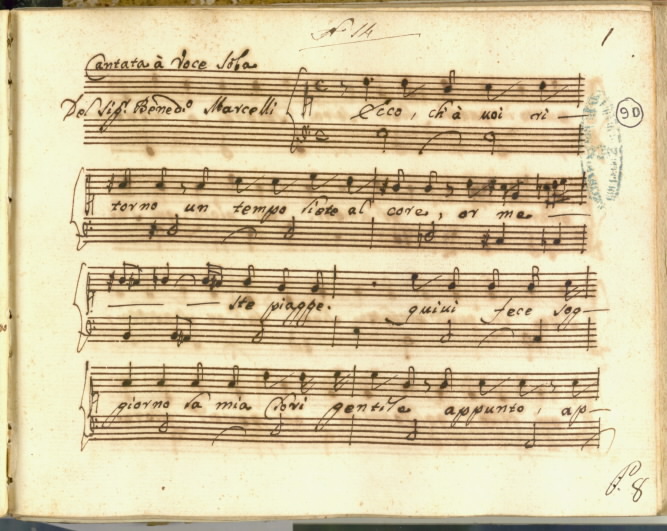 N° 14
1
Cantata à Voce Sola
Del Sigr. Bened.o Marcelli
Ecco, ch'à voi ri-
9D
torno un tempo liete al core, or me
ste piagge. quivi fece sog-
giorno la mia Clori gentile appunto, ap-
8